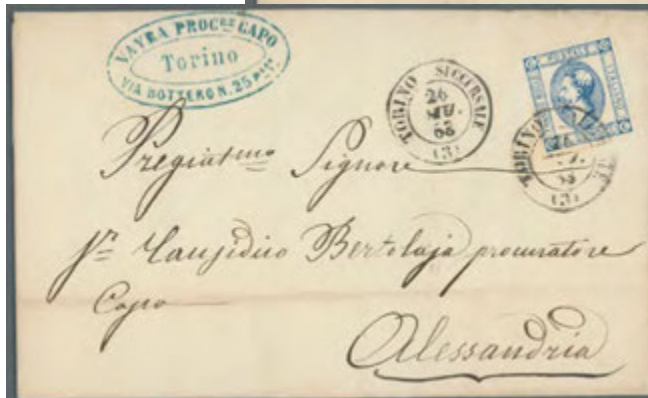 VAYRA PROC.RE CAPO
Torino
VIA BOTTERO N. 25
TORINO SUCCURSALE
26
63
(3)
POSTALE
TORINO
(3)
Pregiatmo Signore
Sr Causidico Bertolaja procuratore
Capo
Alessandria